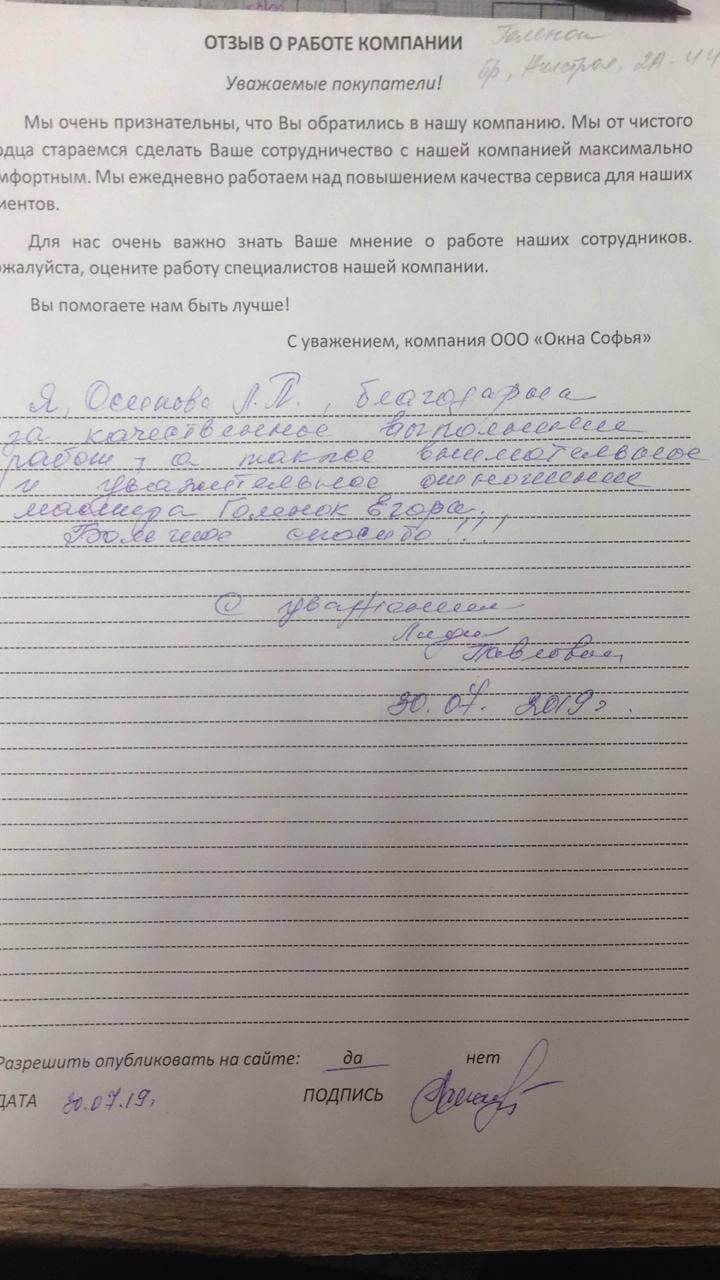 ОТЗЫВ О РАБОТЕ КОМПАНИИ
Голенок
бр, 2А-44
Уважаемые покупатели!
Мы очень признательны, что Вы обратились в нашу компанию. Мы от чистого
рдца стараемся сделать Ваше сотрудничество с нашей компанией максимально
мфортным. Мы ежедневно работаем над повышением качества сервиса для наших
иентов.
Для нас очень важно знать Ваше мнение о работе наших сотрудников.
жалуйста, оцените работу специалистов нашей компании.
Вы помогаете нам быть лучше!
С уважением, компания ООО «Окна Софья»
Я, Осипова Л.П., благодарна
за качественное выполнение
работ, а также внимательное
и уважительное отношение
мастера Голенок Егора.
Большое спасибо!!!
С уважением
Лидия
Павловна
30.07.2019г.
Разрешить опубликовать на сайте: да нет
ДАТА 30.07.19г ПОДПИСЬ